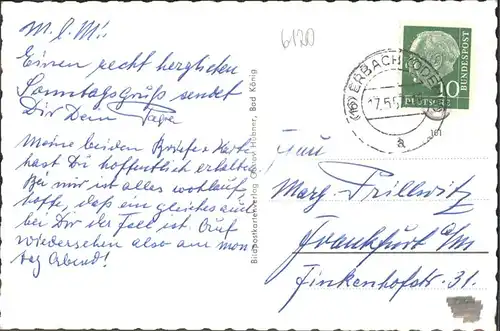 M. l. M!:
Einen recht herzlichen
Sonntagsgruß sendet
Dir Dein Papa
Meine beiden Briefe + Karte
hast Du hoffentlich erhalten.
Bei mir ist alles wohlauf,
hoffe, daß ein gleiches auch
bei Dir der Fall ist. Auf
wiedersehen also am mon-
tag Abend!
6120
Bildpostkartenverlag Gustav Hübner, Bad König
(16) ERBACH (ODENW)
17.5.57
a
10
DEUTSCHE
BUNDESPOST
101
Frau
Marg. Prillwitz
Frankfurt a/M
Finkenhofstr. 31.